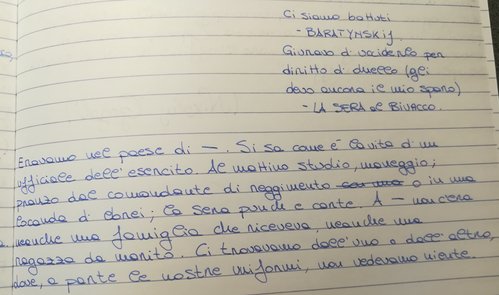 Ci siamo battuti
- BARATYNSKIJ
Giuravo d'ucciderlo per
diritto di duello (gli
devo ancora il mio sparo)
- LA SERA al BIVACCO.
Eravamo nel paese di —. Si sa come è la vita d'un
ufficiale dell'esercito. Al mattino studio, maneggio;
pranzo dal comandante di reggimento o in una
locanda d'ebrei; la sera punch e carte. A — non c'era
neanche una famiglia che riceveva, neanche una
ragazza da marito. Ci trovavamo dall'uno o dall'altro,
dove, a parte le nostre uniformi, non vedevamo niente.